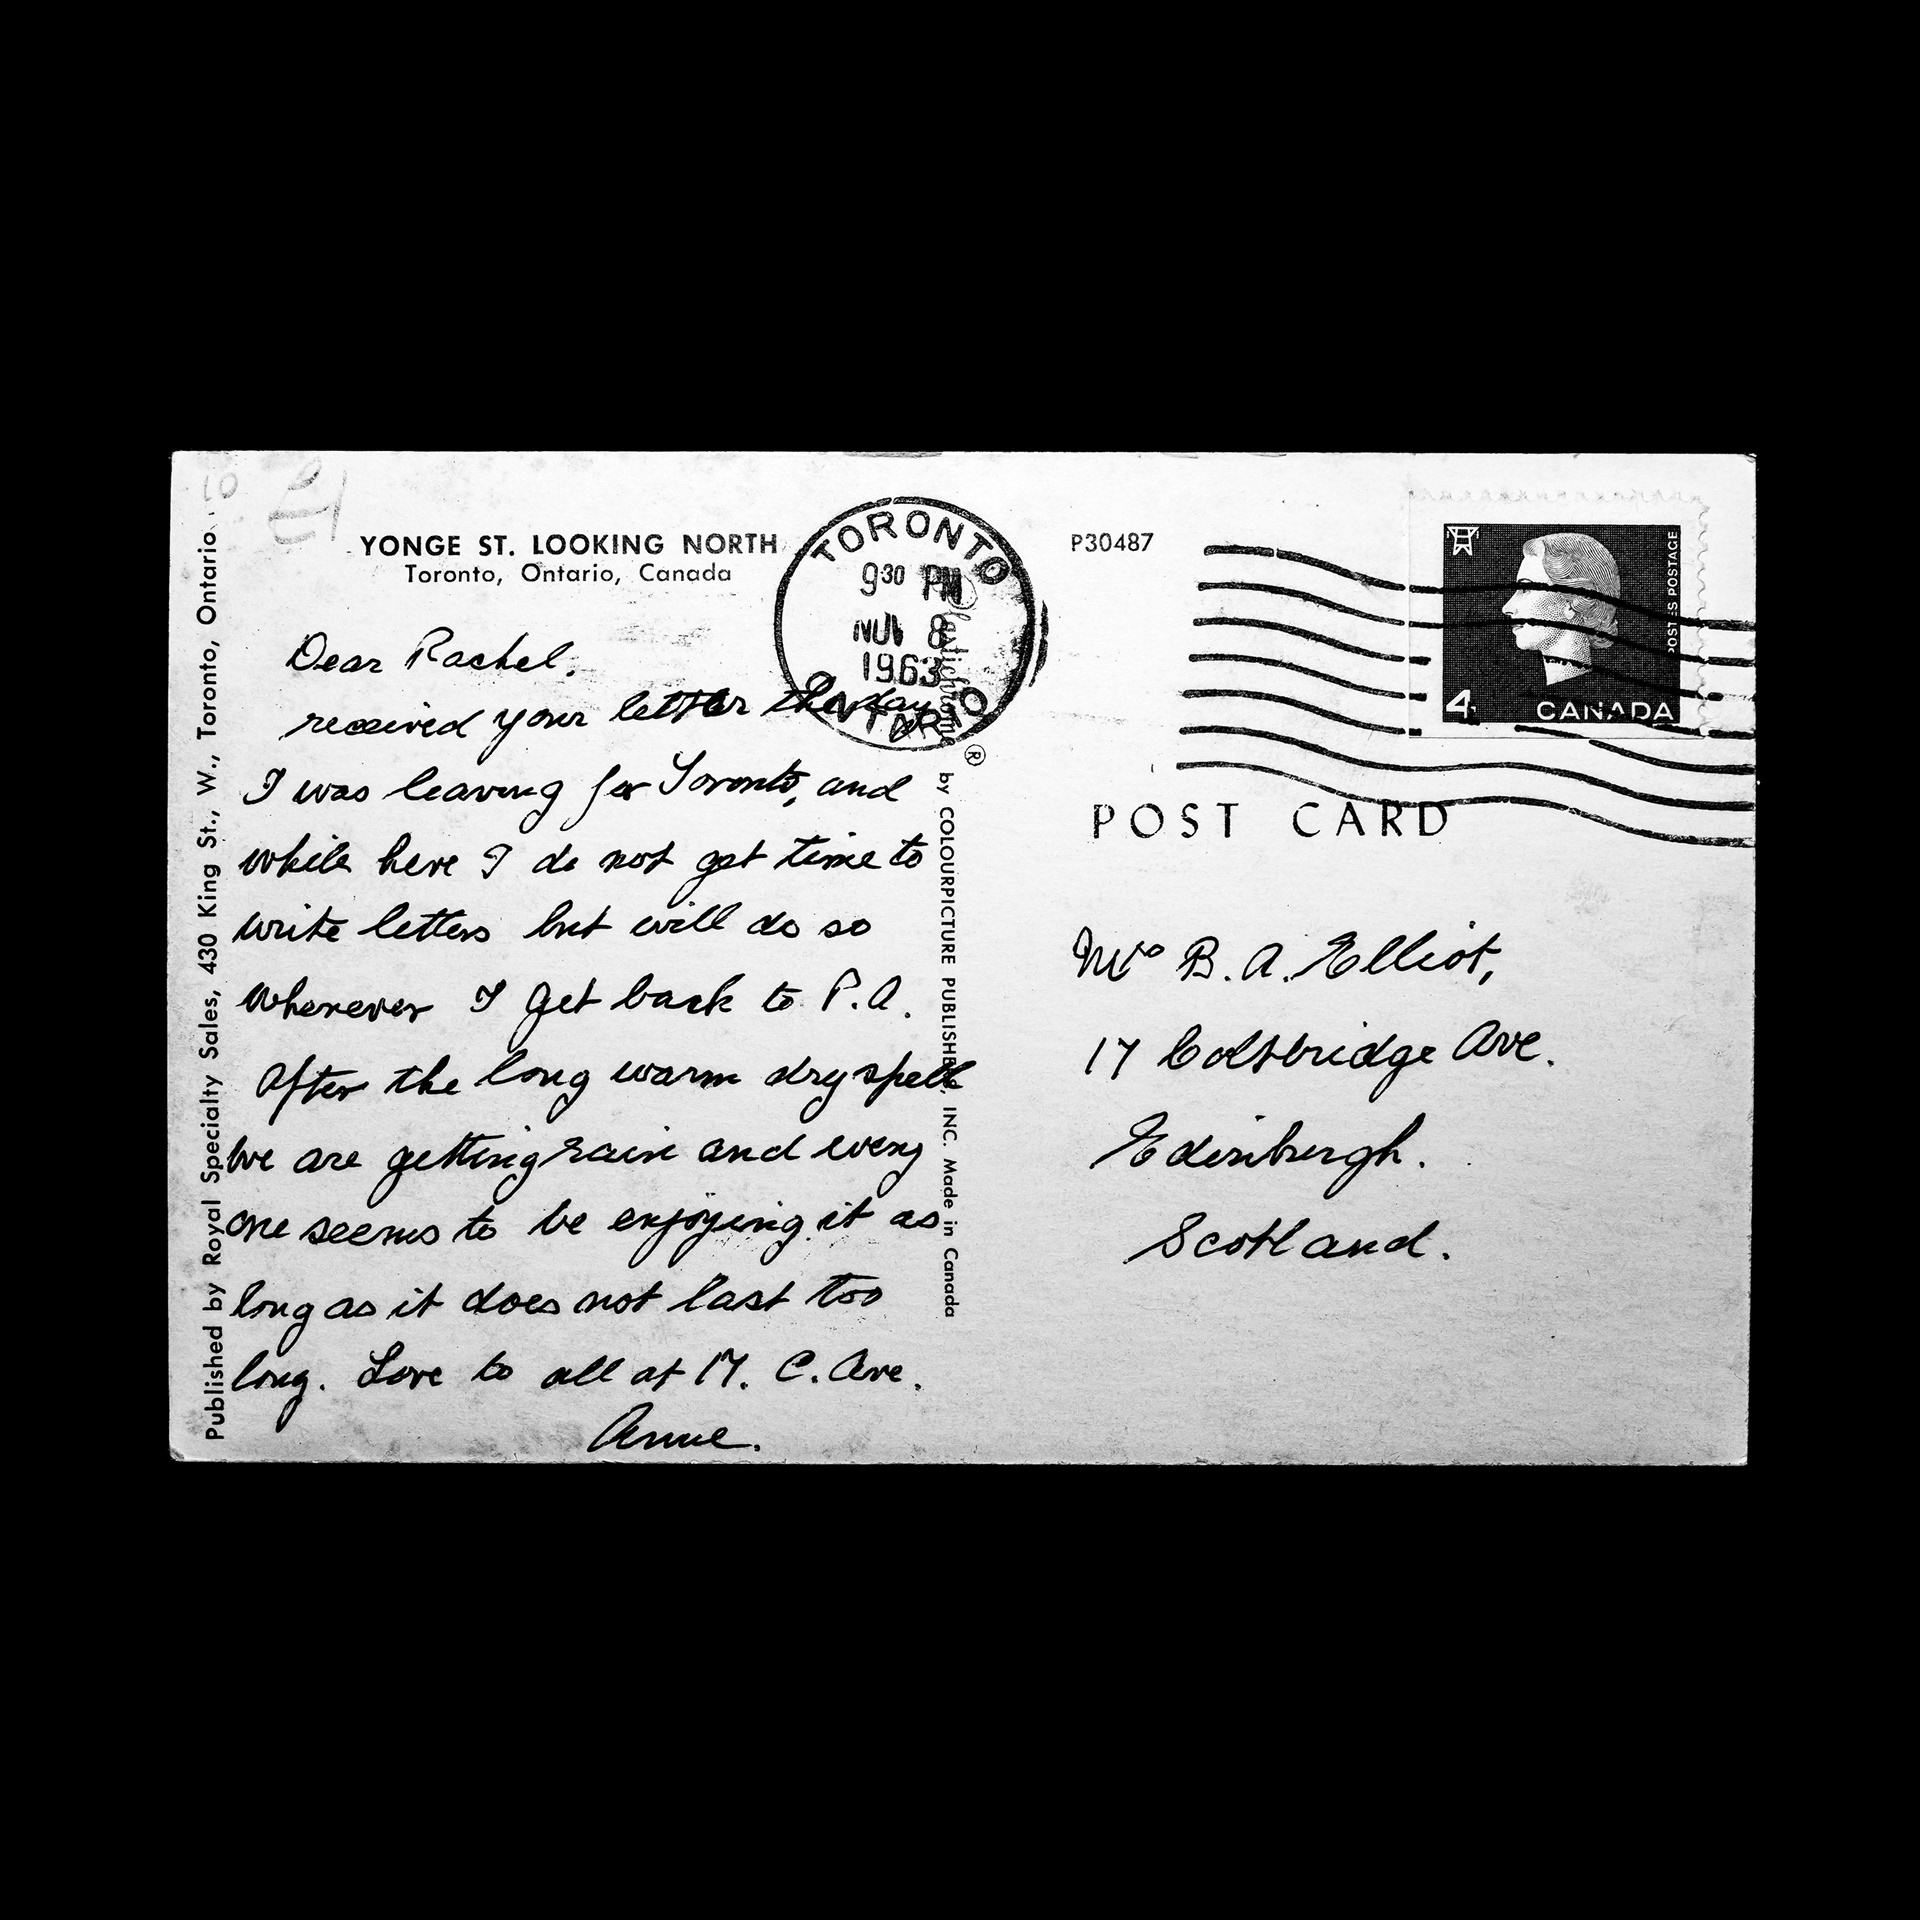 YONGE ST. LOOKING NORTH
Toronto, Ontario, Canada
Dear Rachel,
received your letter the day
I was leaving for Toronto, and
while here I do not get time to
write letters but will do so
whenever I get back to P.A.
After the long warm dry spell
we are getting rain and every
one seems to be enjoying it as
long as it does not last too
long. Love to all at 17. C. Ave.
Anne.
Published by Royal Specialty Sales, 430 King St., W., Toronto, Ontario
Plastichrome ® by COLOURPICTURE PUBLISHERS, INC. Made in Canada
TORONTO
9 30 PM
NOV 8
1963
ONTARIO
P30487
POSTES POSTAGE
4
CANADA
POST CARD
Mrs B. A. Elliot,
17 Coltbridge Ave.
Edinburgh.
Scotland.